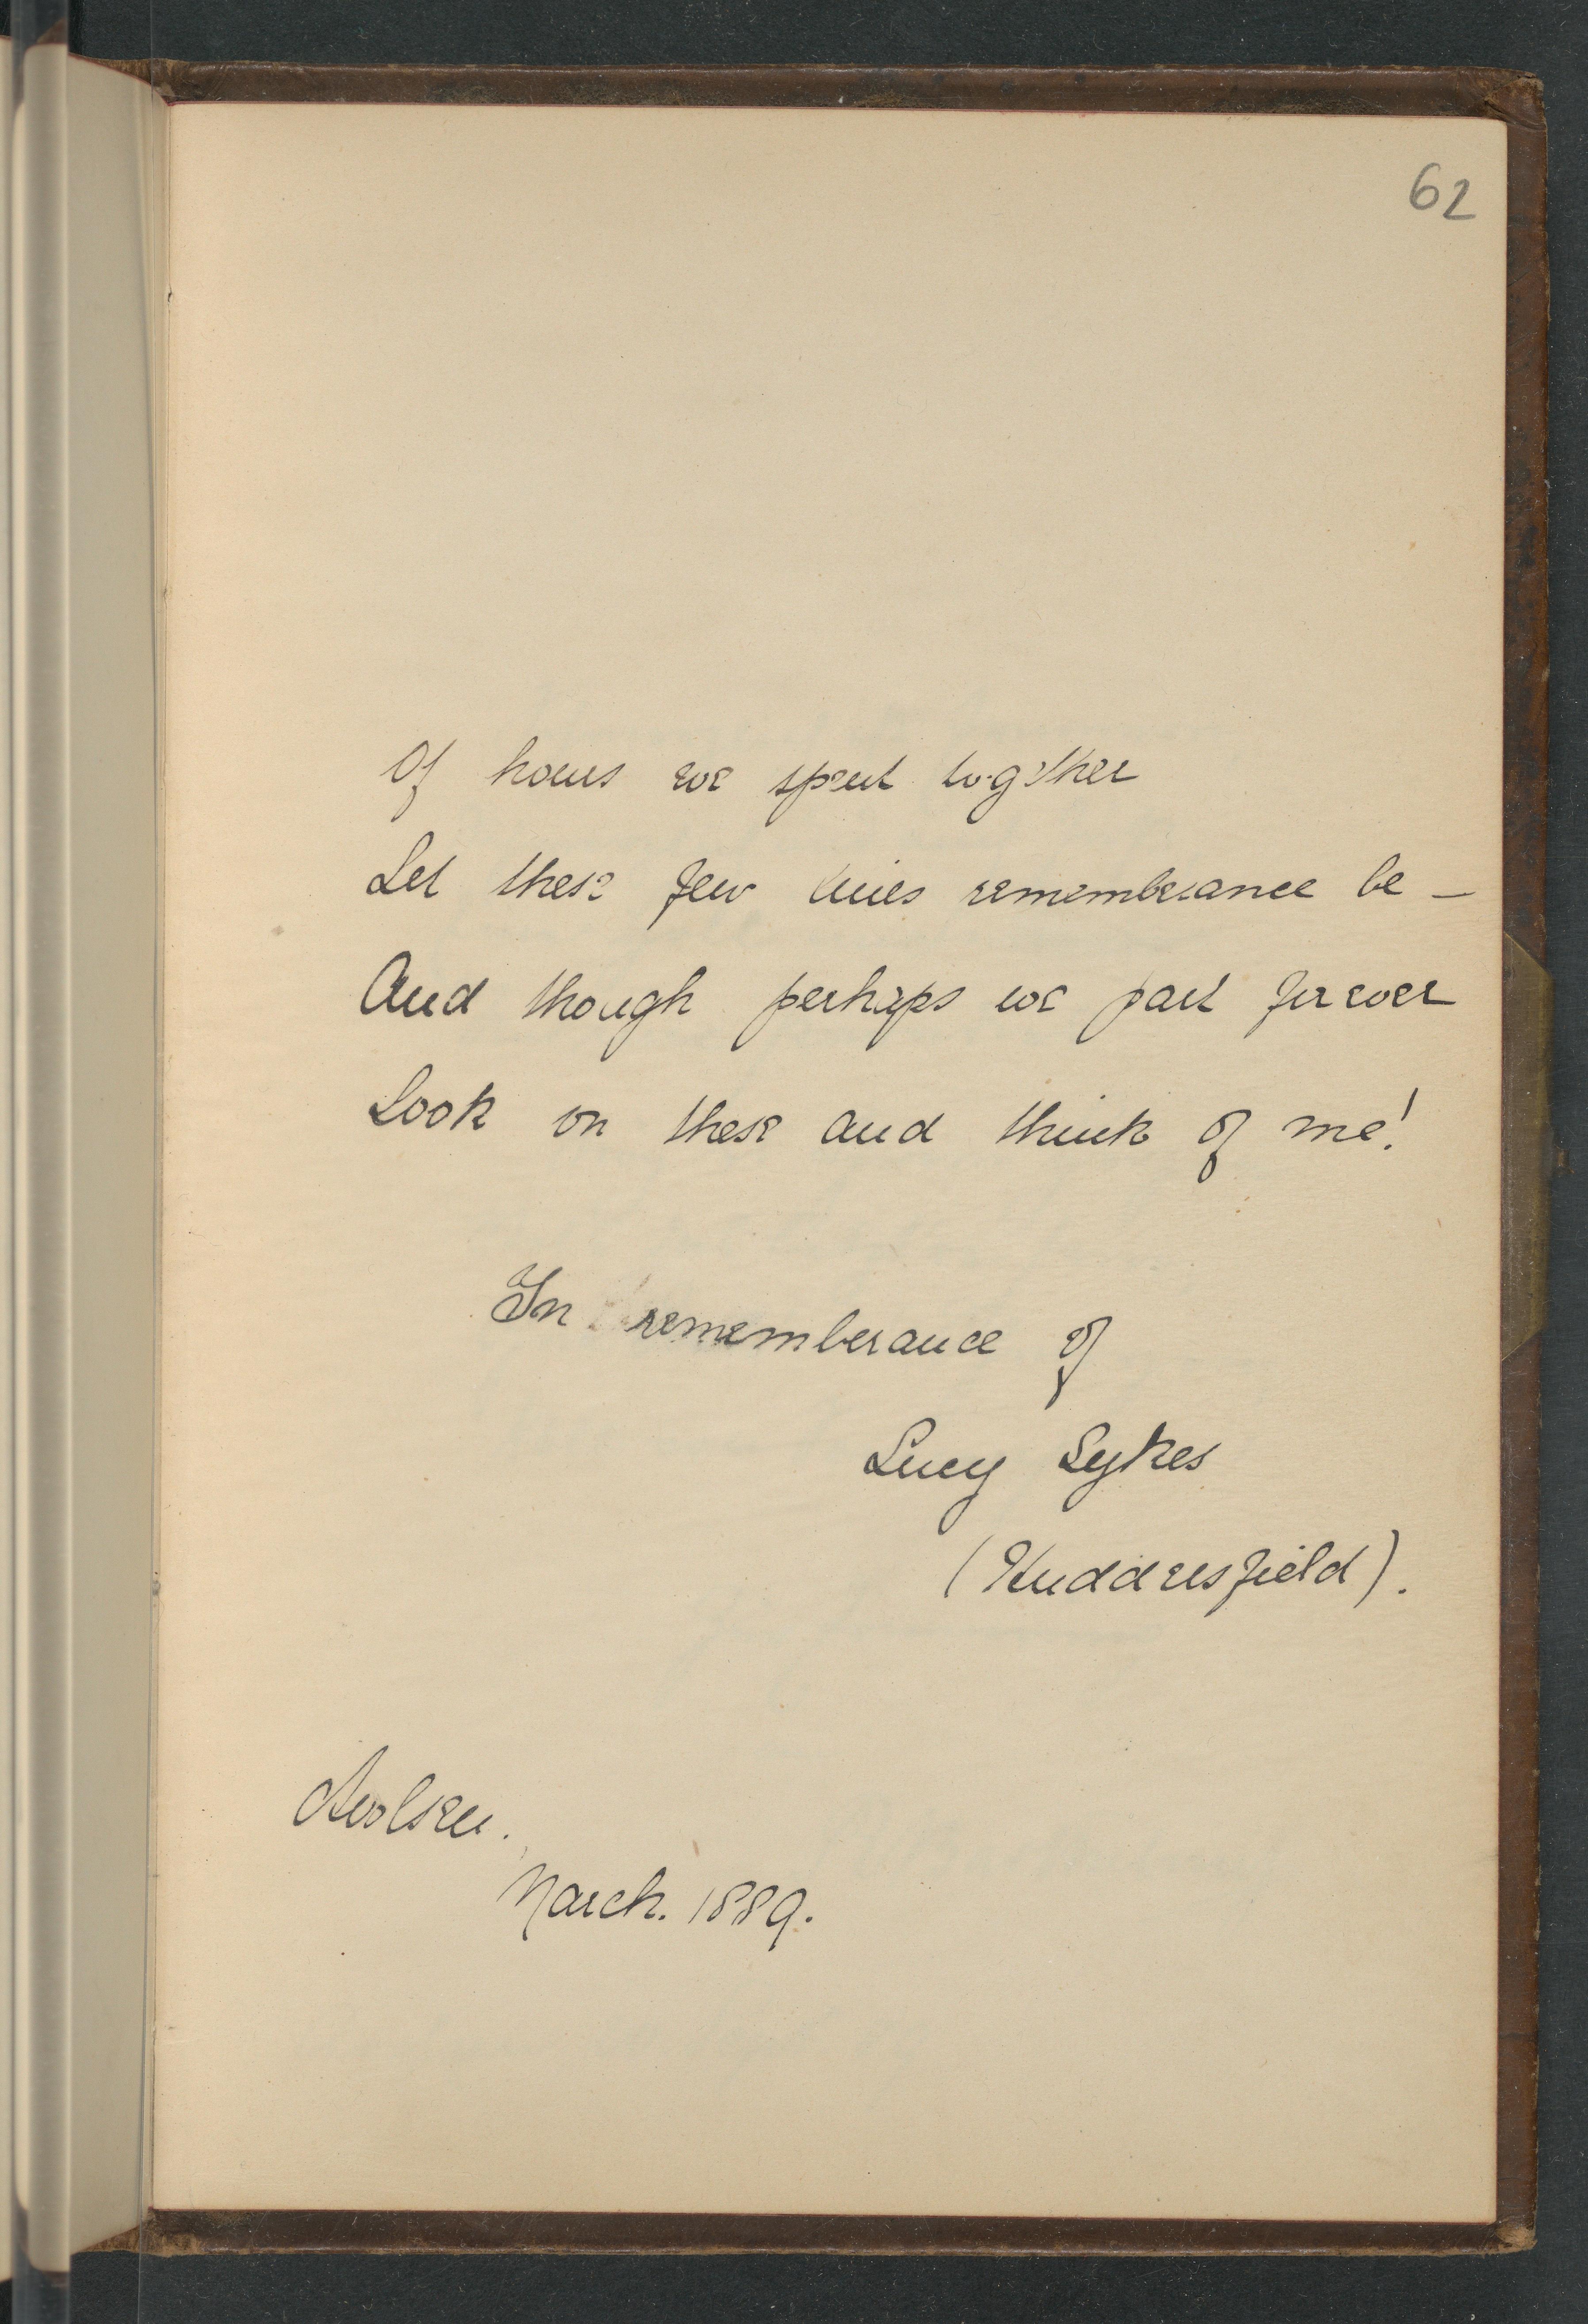 62
Of hours we spent together
Let these few lines rememberance be –
And though perhaps we part forever
Look on these and think of me!
In rememberance of
Lucy Sykes
(Huddersfield).
Arolsen.
March. 1889.